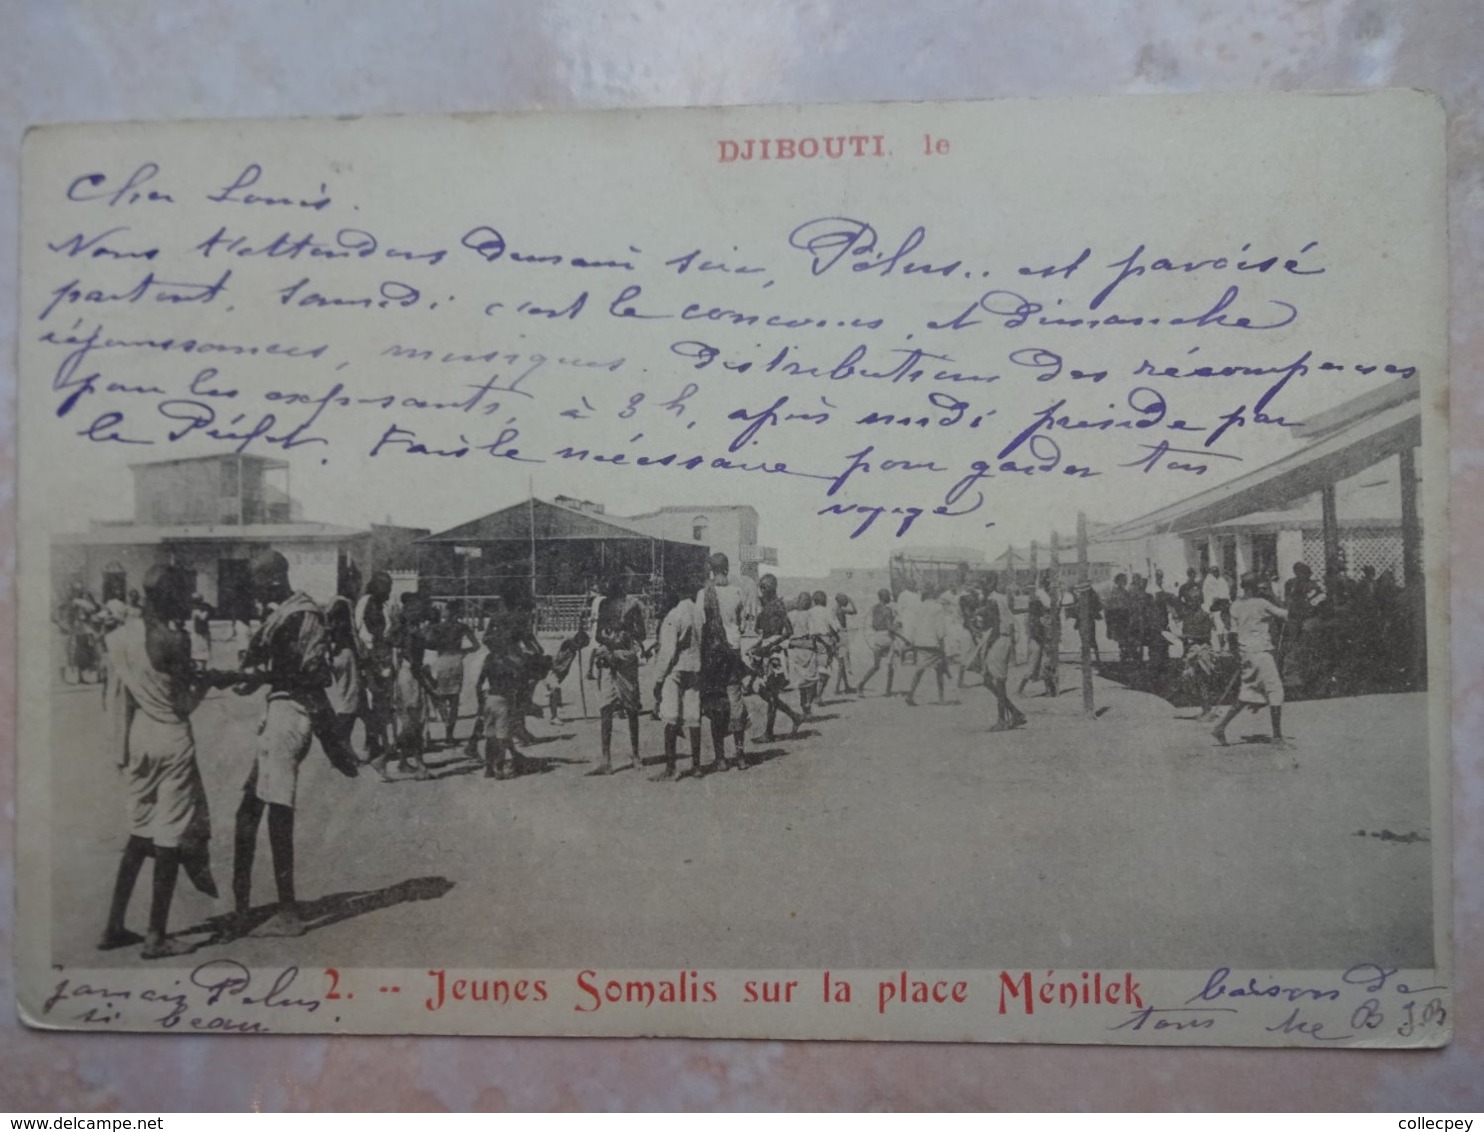 DJIBOUTI, le
Cher Louis.
Nous t'attendons Demain soir, Pélus.. est pavoisé
partout, Samedi c'est le concours, et Dimanche
réjouissances, musiques. Distributions des récompenses
pour les exposants, à 3 h, après midi présidé par
le Préfet. Fais le nécessaire pour garder ton
voyage.
jamais Pelus
si beau.
2. -- Jeunes Somalis sur la place Ménilek
baisers de
tous
B J.B
delcampe.net
collecpey